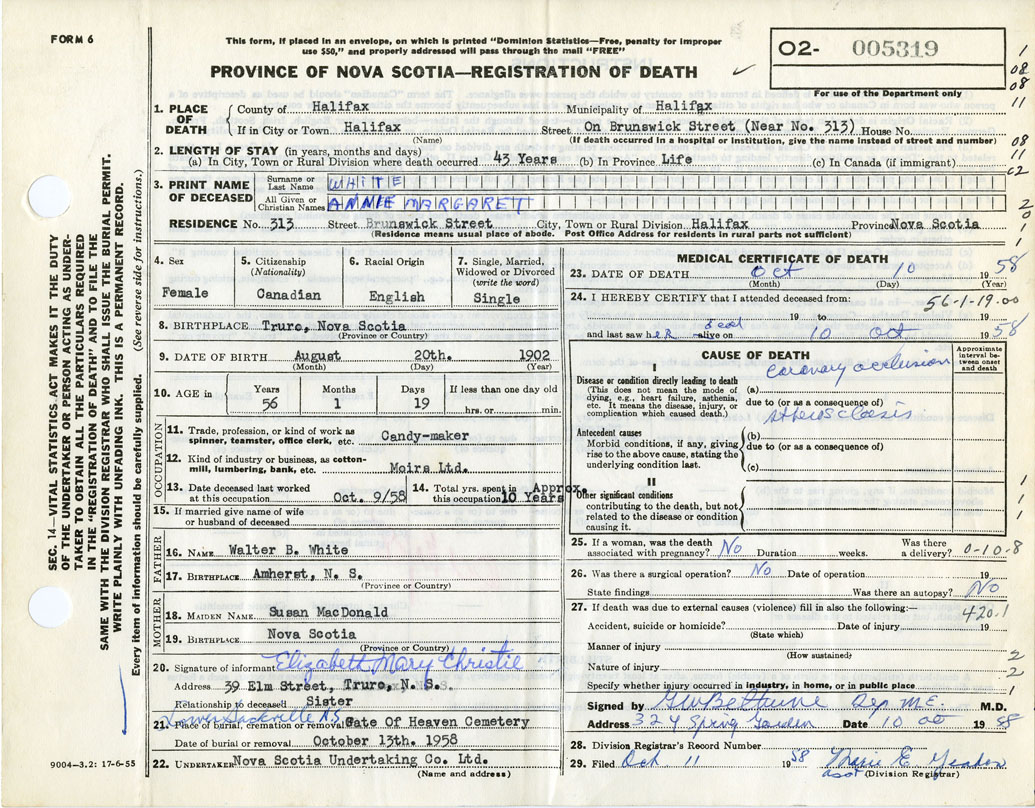 FORM 6
This form, if placed in an envelope, on which is printed "Dominion Statistics—Free, penalty for improper
use $50," and properly addressed will pass through the mail "FREE"
PROVINCE OF NOVA SCOTIA—REGISTRATION OF DEATH
O2- 005319
For use of the Department only
SEC. 14—VITAL STATISTICS ACT MAKES IT THE DUTY
OF THE UNDERTAKER OR PERSON ACTING AS UNDER-
TAKER TO OBTAIN ALL THE PARTICULARS REQUIRED
IN THE "REGISTRATION OF DEATH" AND TO FILE THE
SAME WITH THE DIVISION REGISTRAR WHO SHALL ISSUE THE BURIAL PERMIT.
WRITE PLAINLY WITH UNFADING INK. THIS IS A PERMANENT RECORD.
Every item of information should be carefully supplied. (See reverse side for instructions.)
1. PLACE OF DEATH
County of Halifax Municipality of Halifax
If in City or Town Halifax Street On Brunswick Street (Near No. 313) House No.
(Name) (If death occurred in a hospital or institution, give the name instead of street and number)
2. LENGTH OF STAY (in years, months and days)
(a) In City, Town or Rural Division where death occurred 43 Years (b) In Province Life (c) In Canada (if immigrant)
3. PRINT NAME OF DECEASED
Surname or Last Name WHITE
All Given or Christian Names ANNIE MARGARETT
RESIDENCE No. 313 Street Brunswick Street City, Town or Rural Division Halifax Province Nova Scotia
(Residence means usual place of abode. Post Office Address for residents in rural parts not sufficient)
4. Sex
Female
5. Citizenship
(Nationality)
Canadian
6. Racial Origin
English
7. Single, Married,
Widowed or Divorced
(write the word)
Single
8. BIRTHPLACE Truro, Nova Scotia
(Province or Country)
9. DATE OF BIRTH August 20th. 1902
(Month) (Day) (Year)
10. AGE in
Years Months Days If less than one day old
56 1 19 hrs. or min.
OCCUPATION
11. Trade, profession, or kind of work as
spinner, teamster, office clerk, etc. Candy-maker
12. Kind of industry or business, as cotton-
mill, lumbering, bank, etc. Moirs Ltd.
13. Date deceased last worked
at this occupation Oct. 9/58
14. Total yrs. spent in
this occupation Approx. 10 Years
15. If married give name of wife
or husband of deceased
FATHER
16. NAME Walter B. White
17. BIRTHPLACE Amherst, N. S.
(Province or Country)
MOTHER
18. MAIDEN NAME Susan MacDonald
19. BIRTHPLACE Nova Scotia
(Province or Country)
20. Signature of informant Elizabeth Mary Christie
Address 39 Elm Street, Truro, N. S.
Relationship to deceased Sister
Lower Sackville N.S.
21. Place of burial, cremation or removal Gate Of Heaven Cemetery
Date of burial or removal October 13th. 1958
22. UNDERTAKER Nova Scotia Undertaking Co. Ltd.
(Name and address)
9004—3.2: 17-6-55
MEDICAL CERTIFICATE OF DEATH
23. DATE OF DEATH Oct 10 1958
(Month) (Day) (Year)
24. I HEREBY CERTIFY that I attended deceased from:
56-1-19.00
19 to 19
and last saw her alive on dead 10 Oct 1958
CAUSE OF DEATH
Approximate interval between onset and death
I
Disease or condition directly leading to death
(This does not mean the mode of
dying, e.g., heart failure, asthenia,
etc. It means the disease, injury, or
complication which caused death.)
(a) coronary occlusion
due to (or as a consequence of)
Antecedent causes
Morbid conditions, if any, giving
rise to the above cause, stating the
underlying condition last.
(b)
due to (or as a consequence of)
(c)
II
Other significant conditions
contributing to the death, but not
related to the disease or condition
causing it.
25. If a woman, was the death
associated with pregnancy? No Duration weeks. Was there
a delivery? 0-10-8
26. Was there a surgical operation? No Date of operation 19
State findings Was there an autopsy? No
27. If death was due to external causes (violence) fill in also the following:—
420.1
Accident, suicide or homicide? Date of injury 19
(State which)
Manner of injury
(How sustained)
Nature of injury
Specify whether injury occurred in industry, in home, or in public place
Signed by M.E. M.D.
Address 324 Spring Garden Date 10 Oct 1958
28. Division Registrar's Record Number
29. Filed Oct 11 1958 Marie E.
asst (Division Registrar)
1
08
08
11
08
11
02
2
0
1
1
1
1
2
2
1